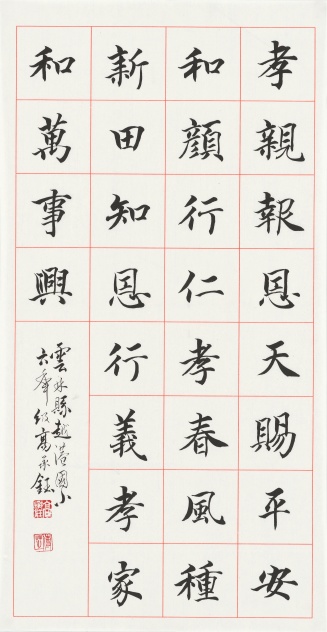 孝親報恩天賜平安
和顏行仁孝春風種
新田知恩行義孝家
和萬事興
雲林縣越港國小
六年級高承鈺